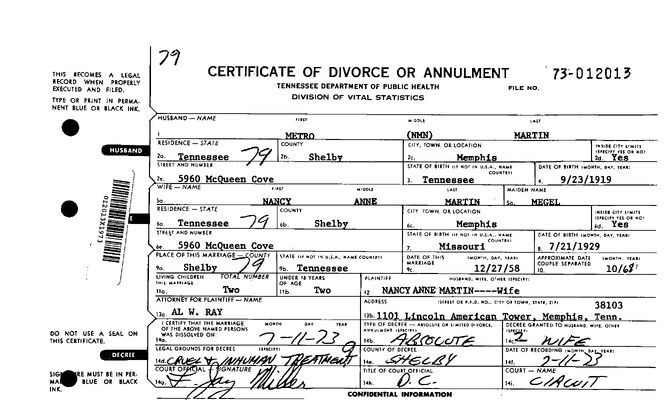 79
CERTIFICATE OF DIVORCE OR ANNULMENT 73-012013
TENNESSEE DEPARTMENT OF PUBLIC HEALTH FILE NO.
DIVISION OF VITAL STATISTICS
THIS BECOMES A LEGAL
RECORD WHEN PROPERLY
EXECUTED AND FILED.
TYPE OR PRINT IN PERMA-
NENT BLUE OR BLACK
INK.
HUSBAND
HUSBAND — NAME FIRST MIDDLE LAST
1. METRO (NMN) MARTIN
RESIDENCE — STATE COUNTY CITY, TOWN, OR LOCATION INSIDE CITY LIMITS (SPECIFY YES OR NO)
2a. Tennessee 79 2b. Shelby 2c. Memphis 2d. Yes
STREET AND NUMBER STATE OF BIRTH (IF NOT IN U.S.A., NAME COUNTRY) DATE OF BIRTH (MONTH, DAY, YEAR)
2e. 5960 McQueen Cove 3. Tennessee 4. 9/23/1919
WIFE — NAME FIRST MIDDLE LAST MAIDEN NAME
5a. NANCY ANNE MARTIN 5b. MEGEL
RESIDENCE — STATE COUNTY CITY, TOWN, OR LOCATION INSIDE CITY LIMITS (SPECIFY YES OR NO)
6a. Tennessee 79 6b. Shelby 6c. Memphis 6d. Yes
STREET AND NUMBER STATE OF BIRTH (IF NOT IN U.S.A., NAME COUNTRY) DATE OF BIRTH (MONTH, DAY, YEAR)
6e. 5960 McQueen Cove 7. Missouri 8. 7/21/1929
PLACE OF THIS MARRIAGE — COUNTY STATE (IF NOT IN U.S.A., NAME COUNTRY) DATE OF THIS MARRIAGE (MONTH, DAY, YEAR) APPROXIMATE DATE COUPLE SEPARATED (MONTH, YEAR)
9a. Shelby 79 9b. Tennessee 9c. 12/27/58 10. 10/68
LIVING CHILDREN THIS MARRIAGE TOTAL NUMBER UNDER 18 YEARS OF AGE PLAINTIFF HUSBAND, WIFE, OTHER (SPECIFY)
11a. Two 11b. Two 12 NANCY ANNE MARTIN----Wife
ATTORNEY FOR PLAINTIFF — NAME ADDRESS (STREET OR P.O. NO., CITY OR TOWN, STATE, ZIP) 38103
13a. AL W. RAY 13b. 1101 Lincoln American Tower, Memphis, Tenn.
DO NOT USE A SEAL ON
THIS CERTIFICATE.
DECREE
I CERTIFY THAT THE MARRIAGE OF THE ABOVE NAMED PERSONS WAS DISSOLVED ON MONTH DAY YEAR TYPE OF DECREE — ABSOLUTE OR LIMITED DIVORCE, ANNULMENT (SPECIFY) DECREE GRANTED TO HUSBAND, WIFE, OTHER (SPECIFY)
14a. 7-11-73 14b. ABSOLUTE 14c. 2 WIFE
LEGAL GROUNDS FOR DECREE (SPECIFY) COUNTY OF DECREE DATE OF RECORDING (MONTH, DAY, YEAR)
14d. CRUEL & INHUMAN TREATMENT 9 14e. SHELBY 14f. 7-11-73
SIGNATURE MUST BE IN PER-
MANENT BLUE OR BLACK
INK.
COURT OFFICIAL — SIGNATURE TITLE OF COURT OFFICIAL COURT — NAME
14g. J. Jay Miller 14h. D.C. 14i. CIRCUIT
CONFIDENTIAL INFORMATION